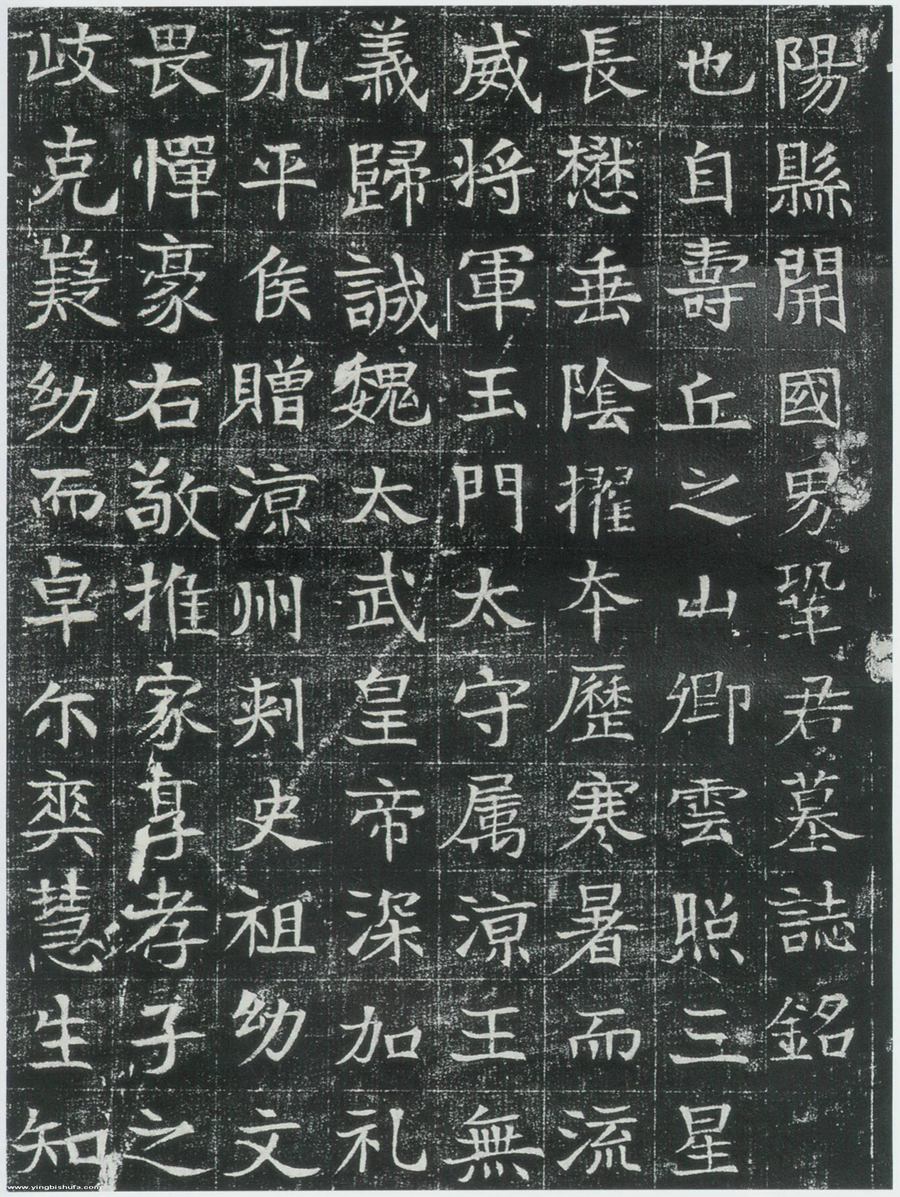 陽縣開國男鞏君墓誌銘
也自壽丘之山卿雲照三星
長懋垂陰擢夲歷寒暑而流
威将軍玉門太守属涼王無
義歸誠魏太武皇帝深加礼
永平侯贈涼州刾史祖幼文
畏憚豪右敬推家享孝子之
岐克嶷幼而卓尒奕慧生知
www.yingbishufa.com